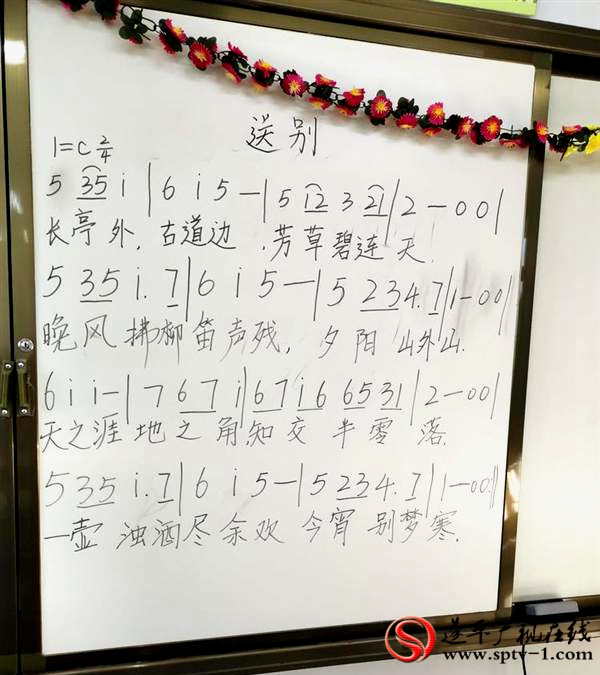 送别
1=C 2/4
5 35 i | 6 i 5 — | 5 i2 3 21 | 2 — 0 0 |
长亭外,古道边,芳草碧连天.
5 35 i. 7 | 6 i 5 — | 5 234. 7 | 1 — 0 0 |
晚风拂柳笛声残,夕阳山外山.
6 i i — | 7 6 7 i | 6 7 i 6 65 31 | 2 — 0 0 |
天之涯地之角,知交半零落.
5 35 i. 7 | 6 i 5 — | 5 234. 7 | 1 — 0 0 ||
一壶浊酒尽余欢今宵别梦寒.
遂平广视在线
www.sptv-1.com